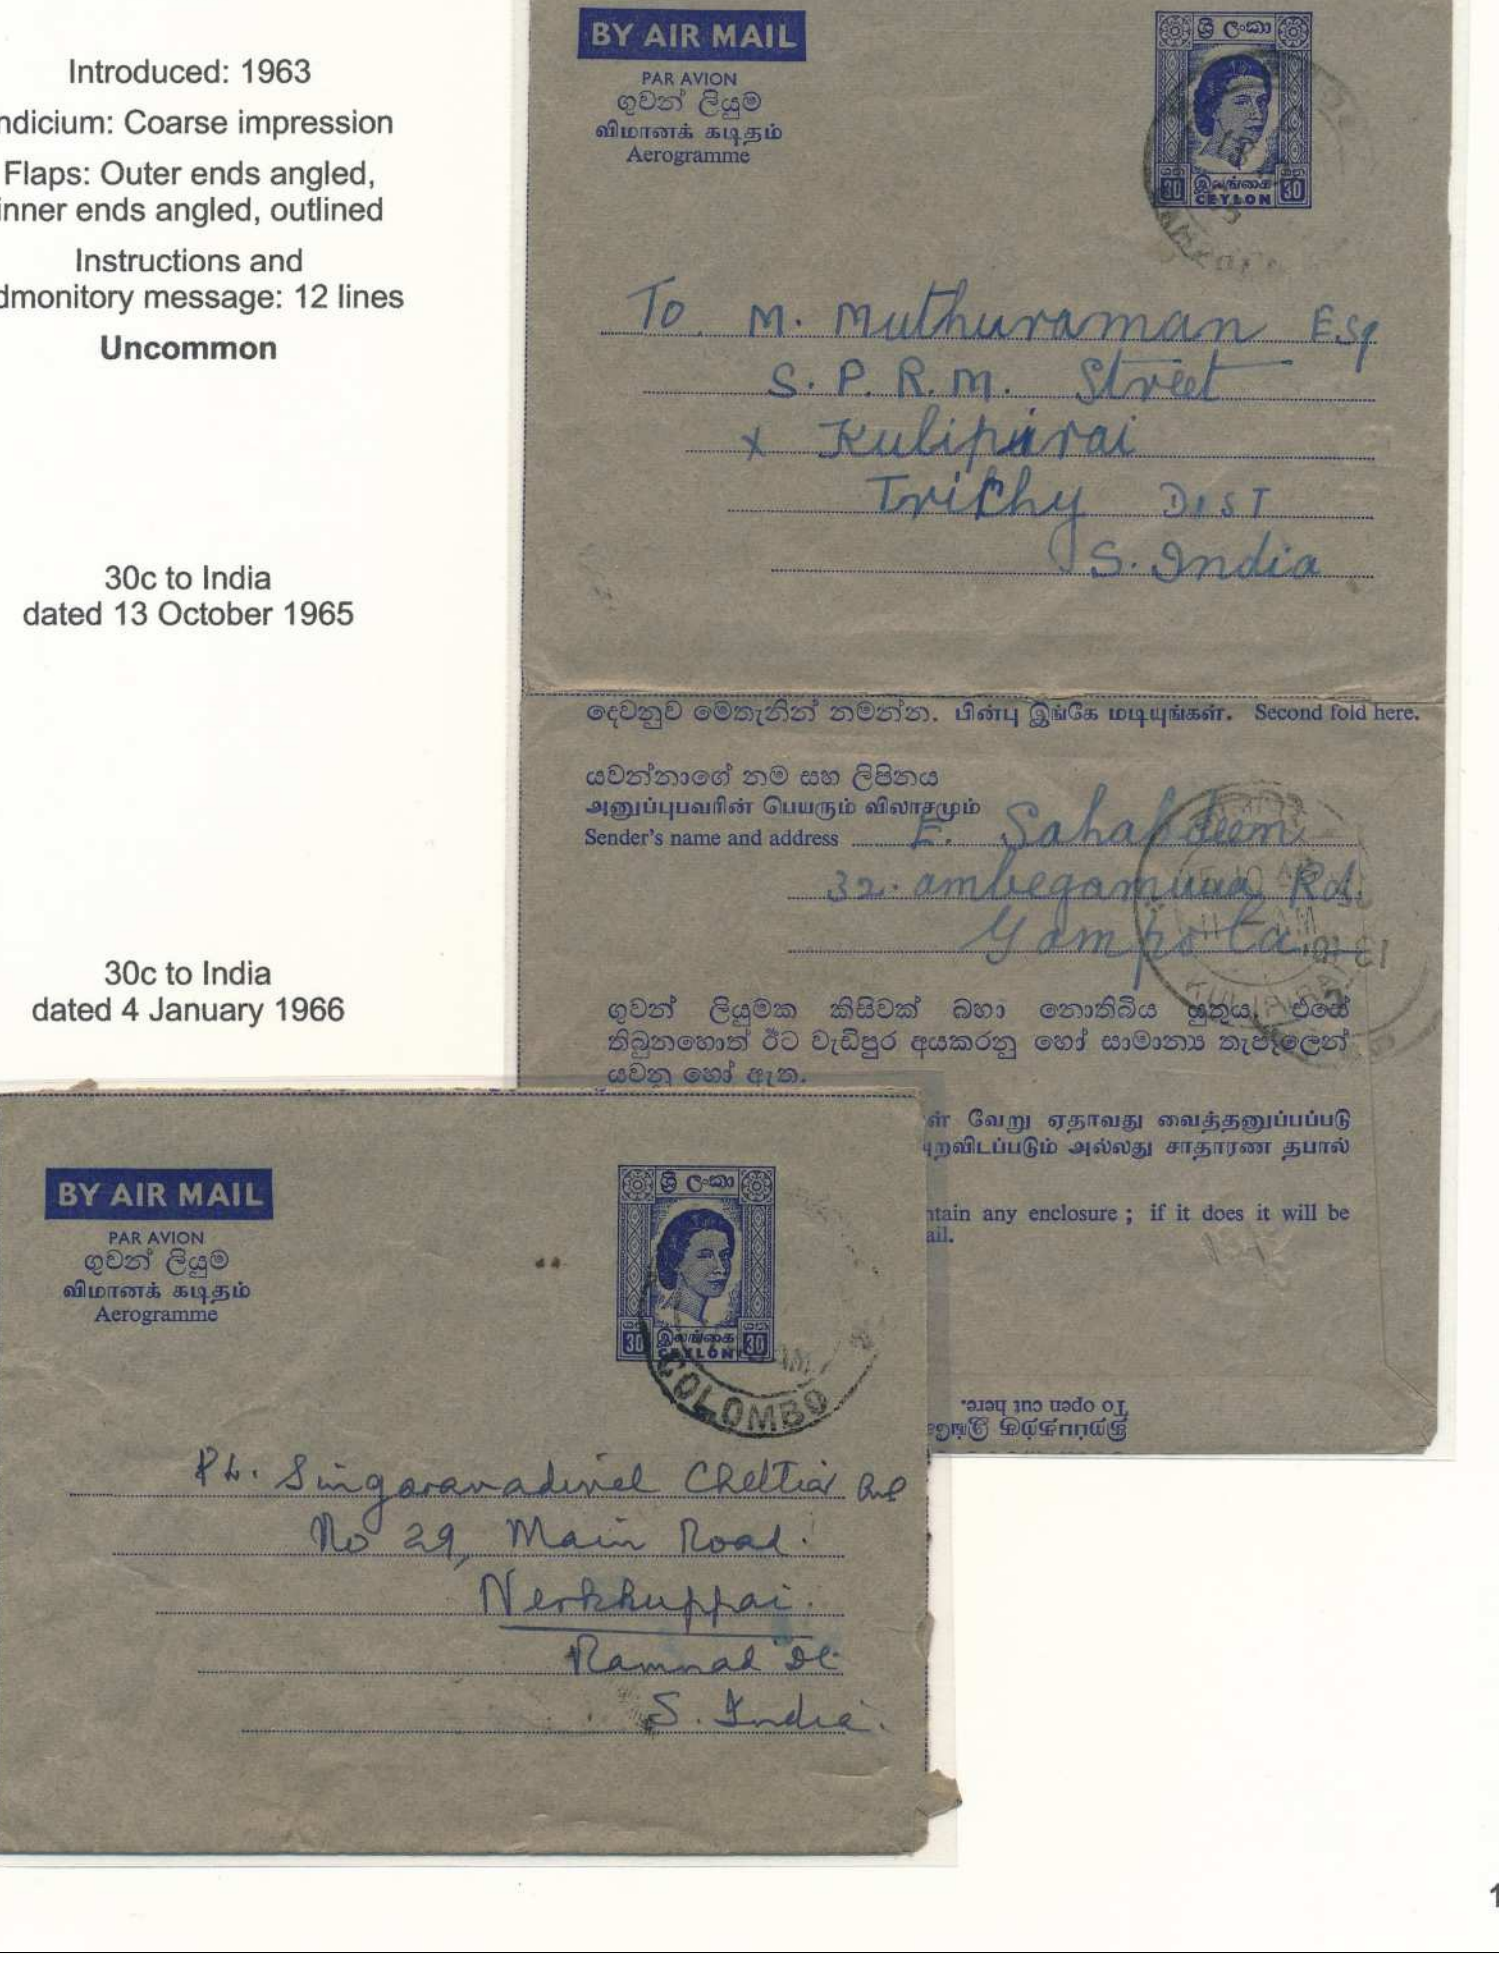 Introduced: 1963
ndicium: Coarse impression
Flaps: Outer ends angled,
inner ends angled, outlined
Instructions and
dmonitory message: 12 lines
Uncommon
30c to India
dated 13 October 1965
30c to India
dated 4 January 1966
BY AIR MAIL
PAR AVION
ගුවන් ලියුම
விமானக் கடிதம்
Aerogramme
ශ්‍රී ලංකා
30 இலங்கை 30
CEYLON
To. M. Muthuraman Esq
S. P. R. M. Street
x Kulipirai
Trichy DIST
S. India
දෙවනුව මෙතැනින් නමන්න. பின்பு இங்கே மடியுங்கள். Second fold here.
යවන්නාගේ නම සහ ලිපිනය
அனுப்புபவரின் பெயரும் விலாசமும்
Sender's name and address E. Sahabdeem
32. ambegamuwa Rd.
Gampola.
ගුවන් ලියුමක කිසිවක් බහා නොතිබිය යුතුය. එසේ
තිබුනහොත් ඊට වැඩිපුර අයකරනු හෝ සාමාන්‍ය තැපෑලෙන්
යවනු හෝ ඇත.
ள் வேறு ஏதாவது வைத்தனுப்பப்படு
புறவிடப்படும் அல்லது சாதாரண தபால்
ntain any enclosure ; if it does it will be
ail.
To open cut here.
BY AIR MAIL
PAR AVION
ගුවන් ලියුම
விமானக் கடிதம்
Aerogramme
ශ්‍රී ලංකා
30 இலங்கை 30
CEYLON
COLOMBO
PL. Singaravadivel Chettiar
No 29, Main Road.
Nerkhuppai.
Ramnad Dt
S. India.
1